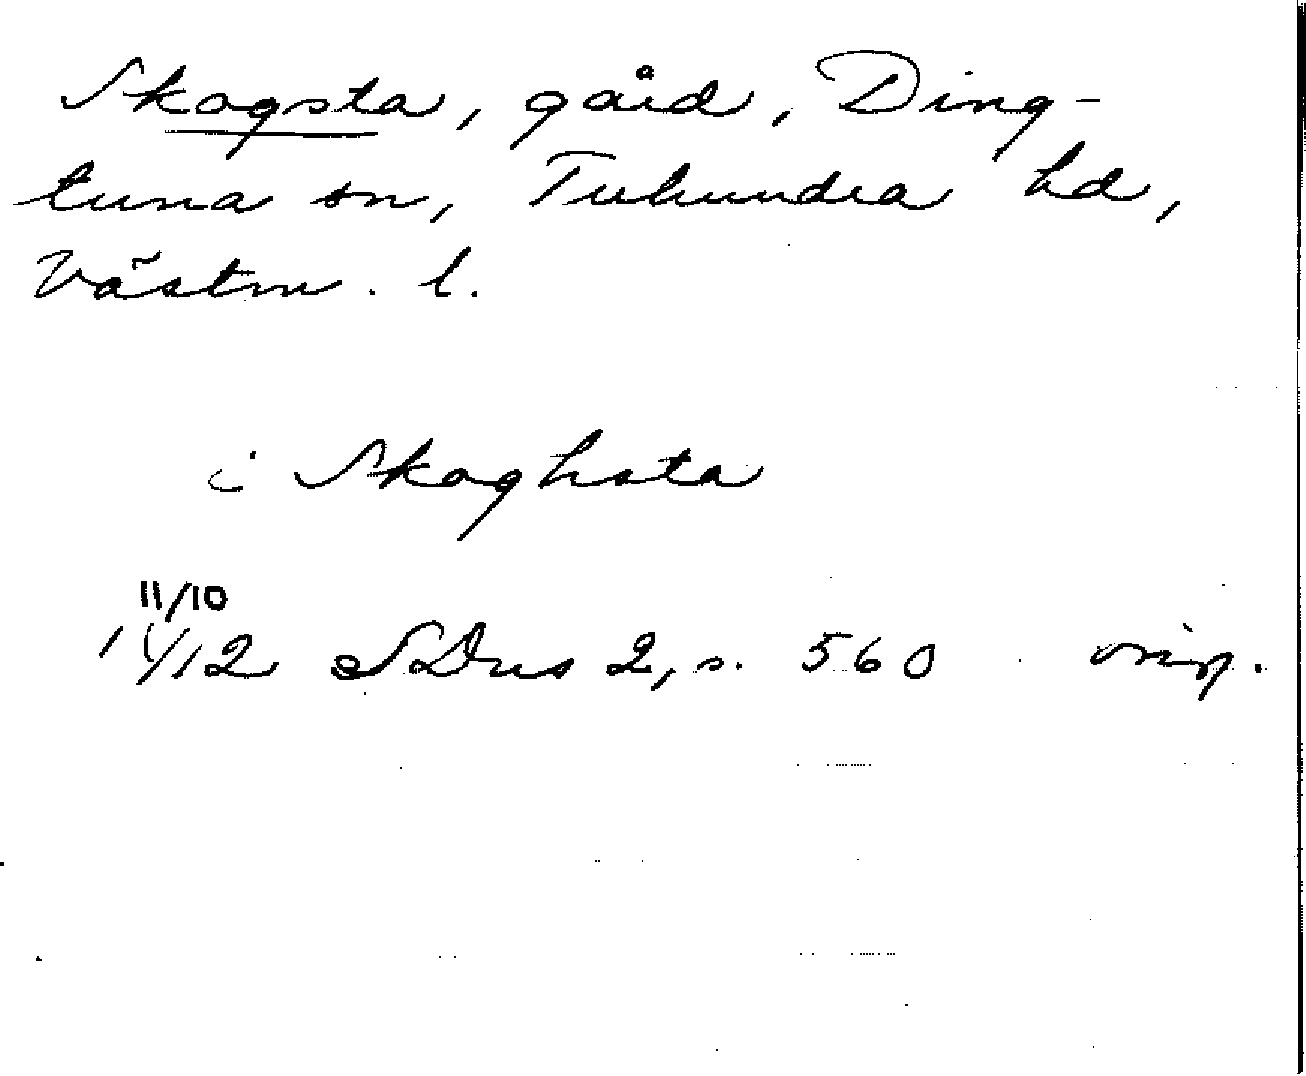 Skogsta, gård, Ding-
tuna sn, Tuhundra hd,
Västm. l.
i Skoghsta
11/10
1412 SDns 2, s. 560 orig.